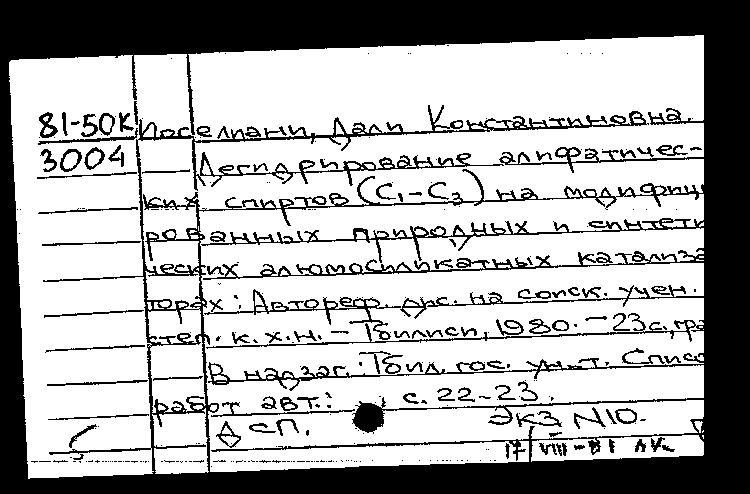 81-50К Иоселиани, Дали Константиновна.
3004 Дегидрирование алифатичес-
ких спиртов (С₁-С₃) на модифици
рованных природных и синтети
ческих алюмосиликатных катализа
торах: Автореф. дис. на соиск. учен.
степ. к.х.н. - Тбилиси, 1980. - 23с., гра
В надзаг.: Тбил. гос. ун-т. Списо
работ авт.: с. 22-23.
Д сп. Экз N10.
17/VIII-81